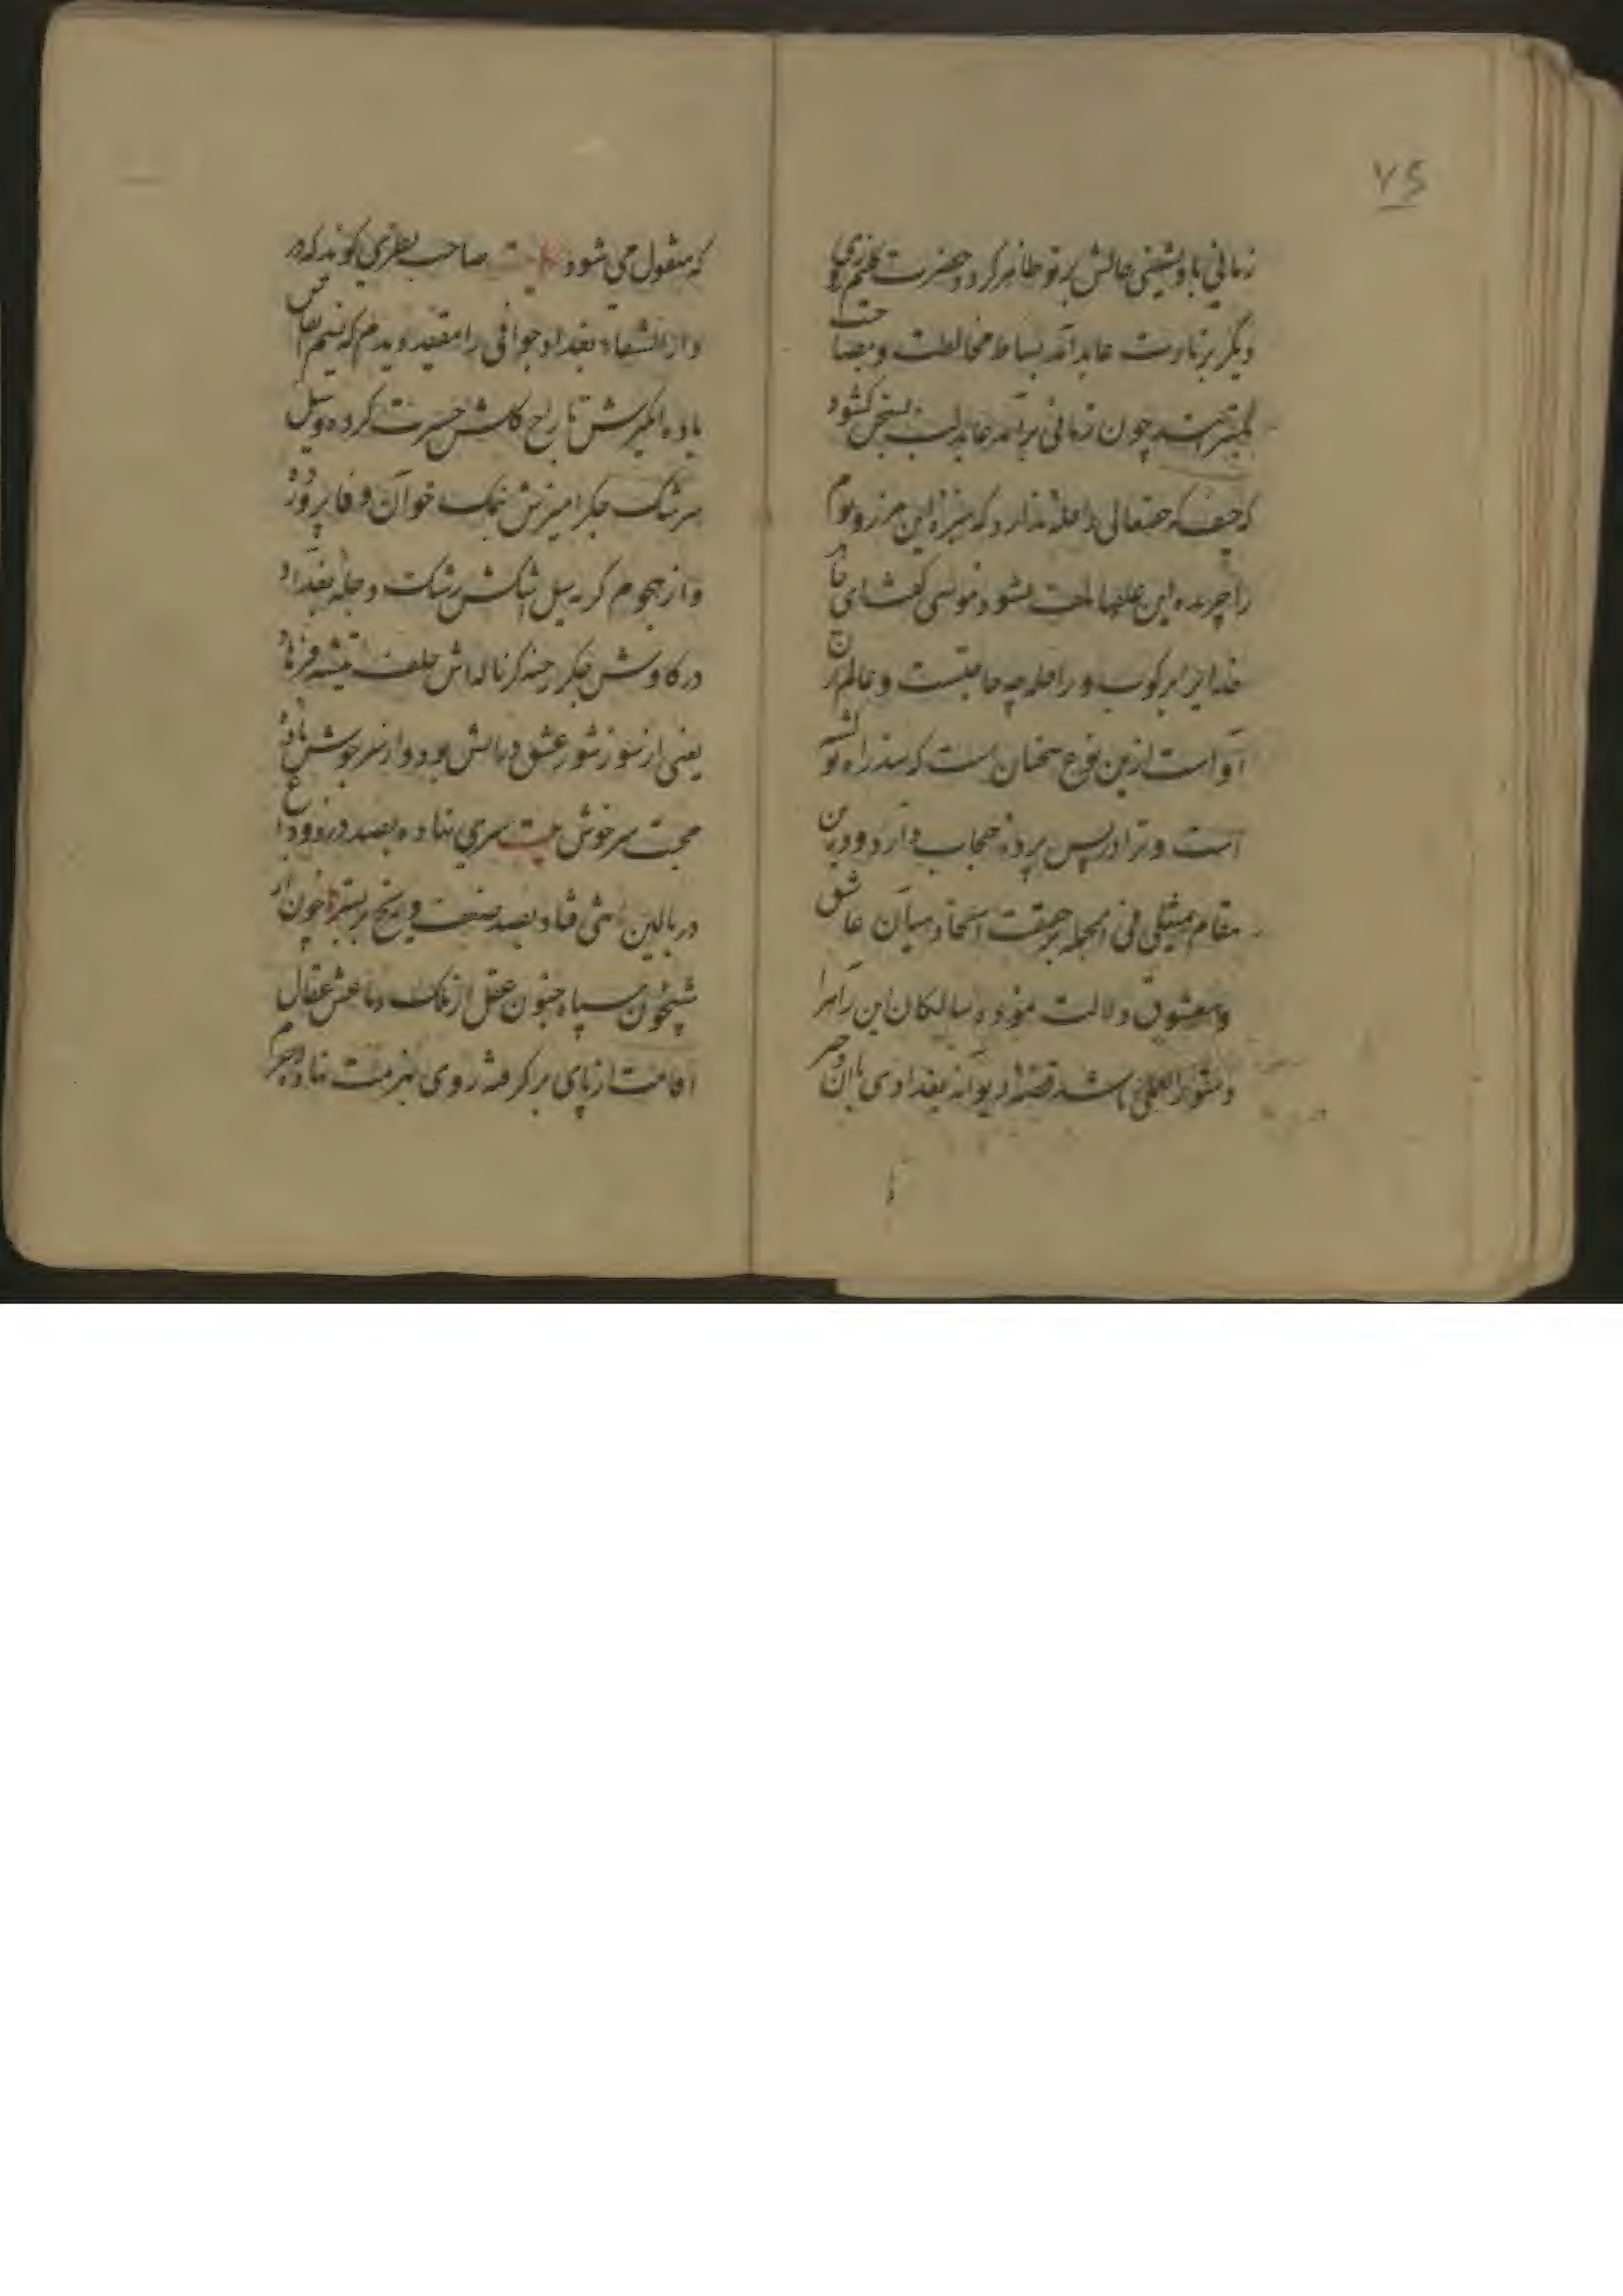 ۷۶
زمانی با و نشینی حالش بر تو ظاهر کرد حضرت کلیم روزی
دیگر بزیارت عابد آمد بساط مخالطت و مصاحبت
بگسترانید چون زمانی برآمد عابد لب بسخن گشود
که حیف که حقتعالی را حله ندارد که سبزه این مرز و بوم
را چریده این علفها تلف نشود موسی گفت ای
خدایرا مرکوب و راحله چه حاجتست و عالم
است ازین نوع سخنان است که سد راه تو
است و ترا در پس پرده حجاب دارد و درین
مقام تمثیلی فی الجمله بر حقیقت اتحاد میان عاشق
و معشوق دلالت نموده سالکان این راه را
دستور العمل باشد قصه دیوانه بغدادی
که منقول می شود حکایت صاحب نظری گوید که در
دار الشفاء بغداد جوانی را مقید دیدم که نسیم
باده انگیزش تاراج گلشن حسرت کرده و سیل
سرشک جگر آمیزش نمک خوان وفا پرورده
و از هجوم گریه سیل اشکش رشک دجله بغداد
در کاوش جگر رخنه گر ناله اش خلف تیشه فرهاد
یعنی از سوز شور عشق در بالش بود و از سر جوش باده
محبت سرخوش بیت سری نهاده بصد درد و داغ
در بالین تنی فتاده بصد ضعف و رنج بر بستر چون از
شبیخون سپاه جنون عقل از ملک دماغش عقال
اقامت از پای بر گرفته روی بهزیمت نهاده